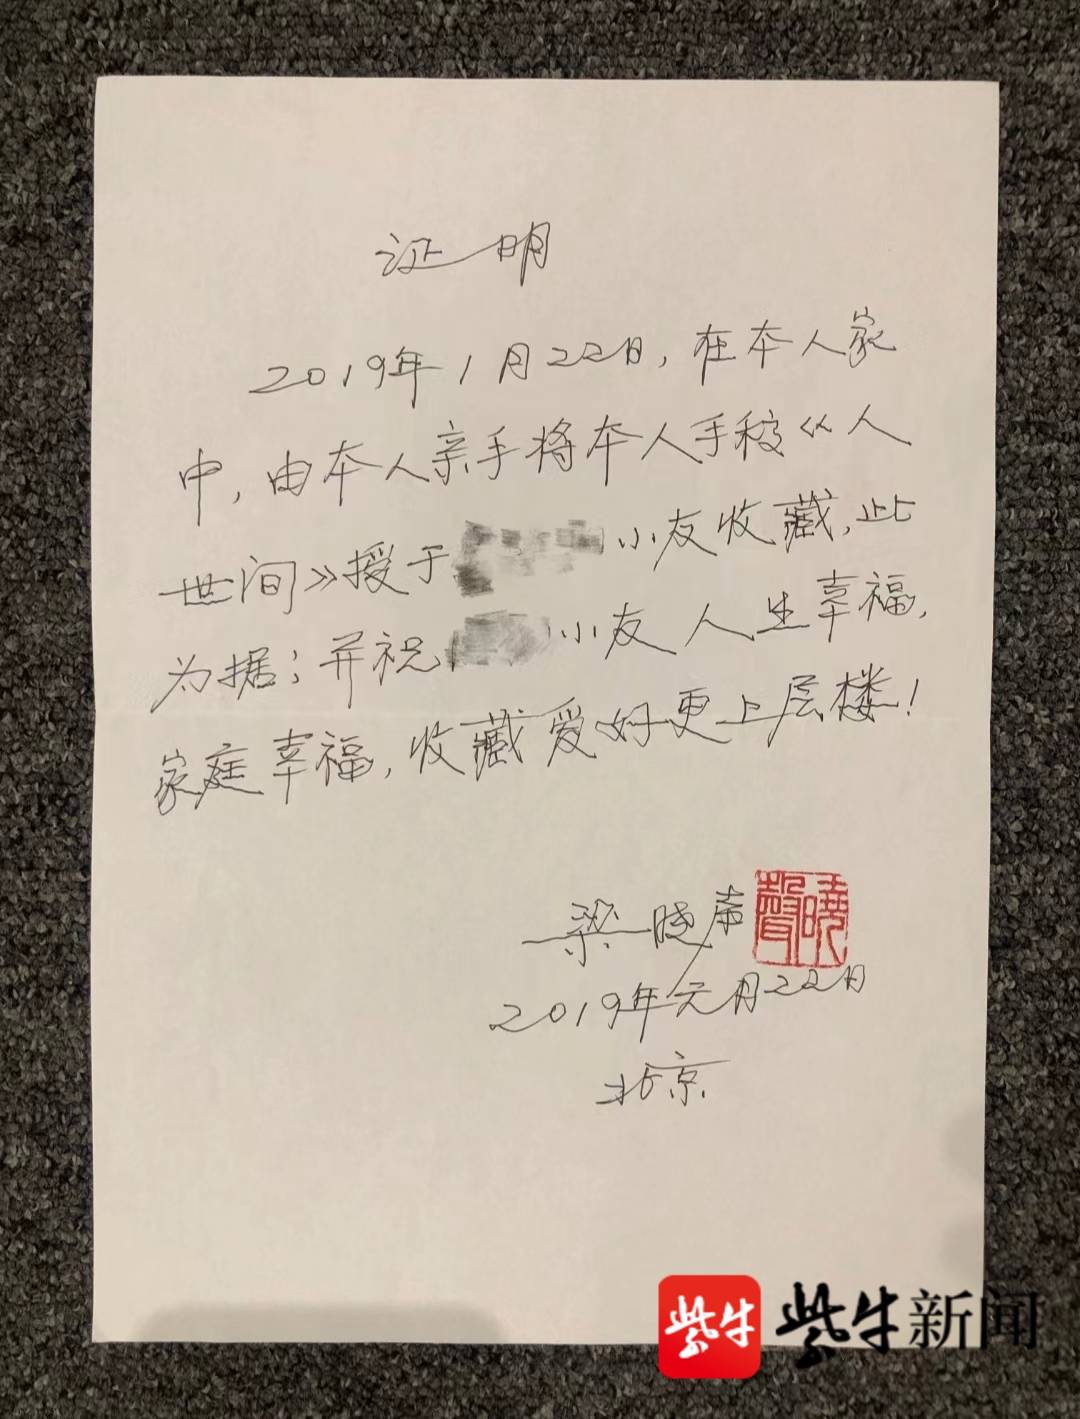 证明
2019年1月22日,在本人家
中,由本人亲手将本人手稿《人
世间》授于 小友收藏,此
为据;并祝 小友人生幸福,
家庭幸福,收藏爱好更上层楼!
梁晓声
曉聲
2019年元月22日
北京
紫牛 紫牛新闻